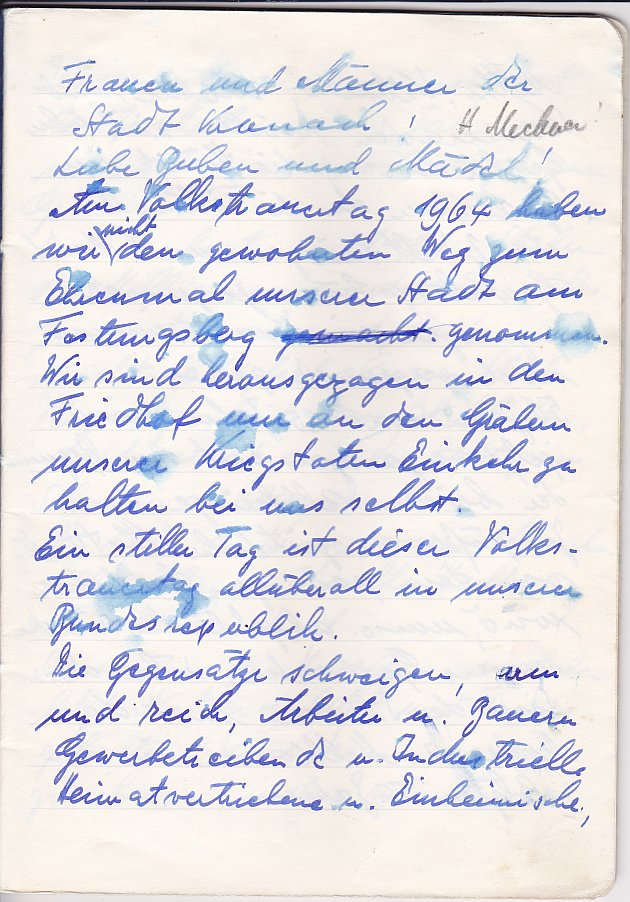 Frauen und Männer der
Stadt Kronach! H
Liebe Buben und Mädel!
Am Volkstrauertag 1964 haben
wir nicht den gewohnten Weg zum
Ehrenmal unserer Stadt am
Festungsberg gemacht. genommen.
Wir sind herausgezogen in den
Friedhof um an den Gräbern
unserer Kriegstoten Einkehr zu
halten bei uns selbst.
Ein stiller Tag ist dieser Volks-
trauertag allüberall in unserer
Bundesrepublik.
Die Gegensätze schweigen, arm
und reich, Arbeiter u. Bauern
Gewerbetreibende u. Industrielle
Heimatvertriebene u. Einheimische,